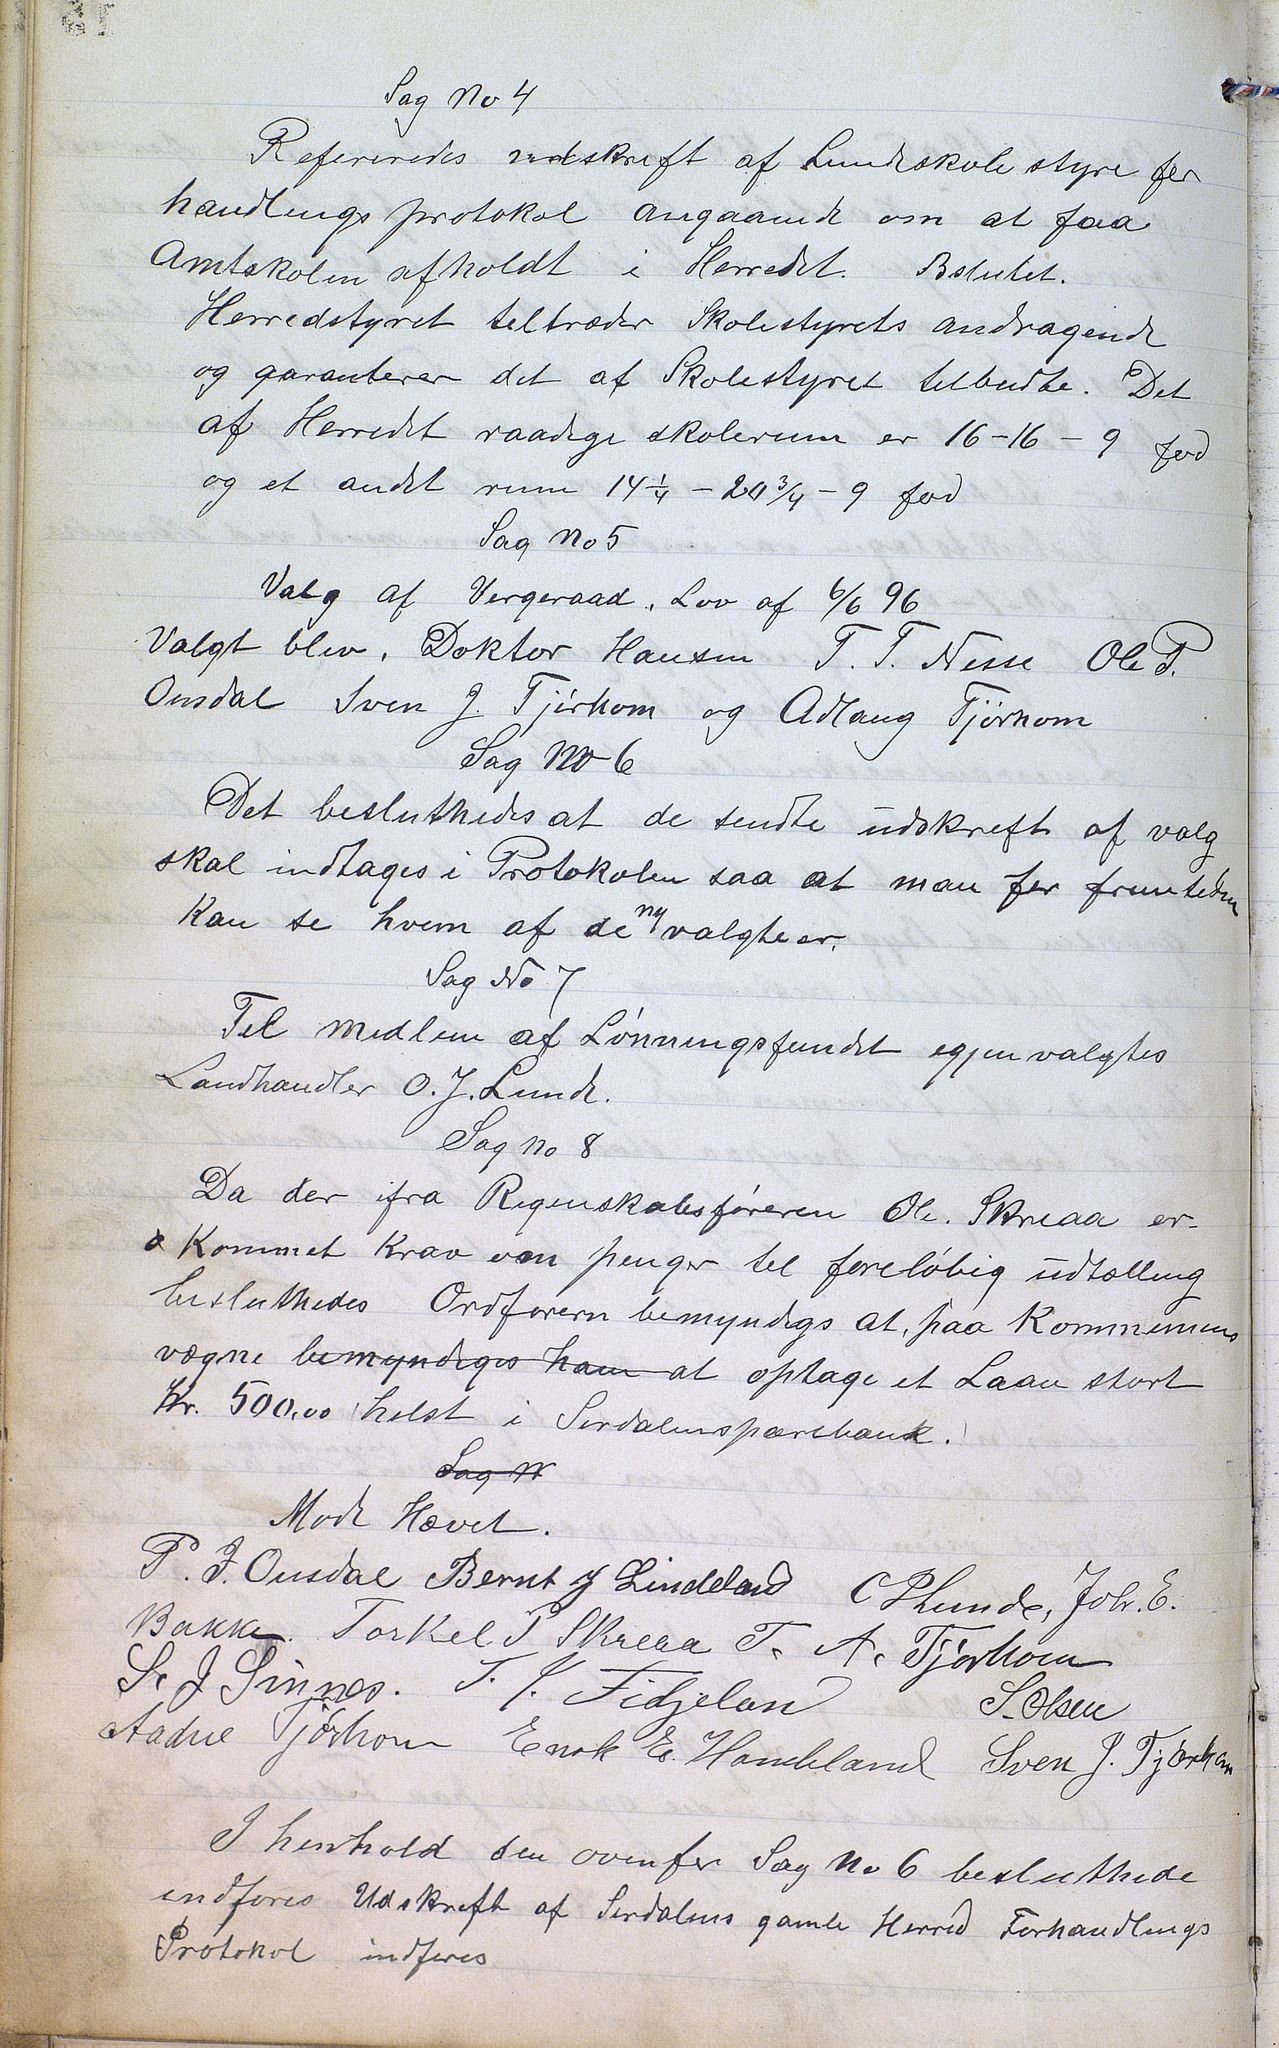 Sag No 4
Refereredes udskrift af Lundeskolestyre for
handlings protokol angaaende om at faa
Amtskolen afholdt i Herredet. Beslutet.
Herredstyret teltræder Skolestyrets andragende
og garanterer det af Skolestyret telbudte. Det
af Herredet raadege skolerum er 16-16-9 fod
og et andet rum 14 1/4 - 20 3/4 - 9 fod
Sag No 5
Valg af Vergeraad. Lov af 6/6 96
Valgt blev. Doktor Hansen T. T. Nesse Ole P.
Ousdal Sven J. Tjørhom og Adlaug Tjørhom
Sag No 6
Det besluthedes at de sendte udskreft af valg
skal indtages i Protokolen saa at man for fremteden
kan se hvem af de ny valgte er.
Sag No 7
Tel medlem af Lønningsfundet egjenvalgtes
Landhandler O. J. Lunde.
Sag No 8
Da der ifra Regenskabsføreren Ole. Skreaa er
kommet krav om penger tel foreløbig udtælling
besluthedes Ordforern bemyndigs at, paa Kommunens
vægne bemyndiges ham at optage et Laan stort
Kr. 500.00 helst i Serdalenssparebank.
Sag N
Mode Hævet.
P. J. Ousdal Bernt J Lindeland C P Lunde, Joh. E.
Bakke. Torkel P Skreaa T. A. Tjørhom
S. J Sinnes. T. J. Fidjeland S. Olsen
Aadne Tjørhom Enok E. Hompland Sven J. Tjørhom
I henhold den ovenfor Sag No 6 besluthede
indfores Udskreft af Serdalens gamle Herred Forhandlings
Protokol indføres